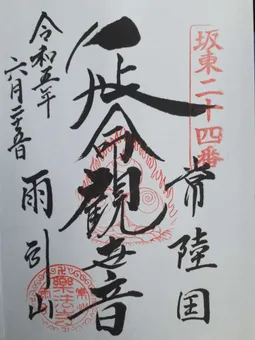 坂東二十四番
常陸国
延命観世音
雨引山
令和五年
六月二十五日
楽法寺